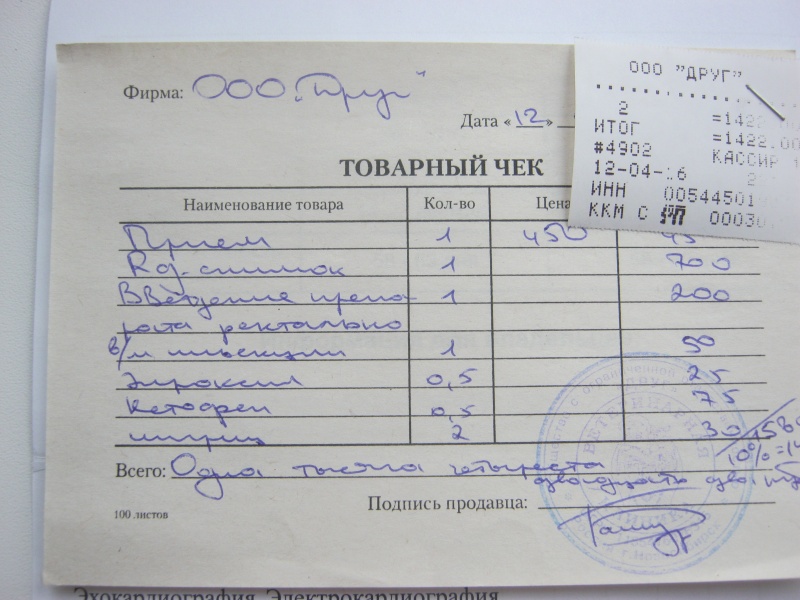 Фирма: ООО „Друг"
Дата «12»
ТОВАРНЫЙ ЧЕК
Наименование товара Кол-во Цена
Прием 1 450 45
Rg-снимок 1 700
Введение препа- 1 200
рата ректально
в/м инъекции 1 50
Энроксил 0,5 25
Кетофен 0,5 75
шприц 2 30
10%=
Всего: Одна тысяча четыреста
двадцать два
Подпись продавца:
100 листов
Эхокардиография, Электрокардиография
ООО "ДРУГ"
2 =1422.
ИТОГ =1422.00
#4902 КАССИР 1
12-04-16 2
ИНН 00544501
ККМ С 00030
ВЕТЕРИНАРНАЯ
ДРУГ